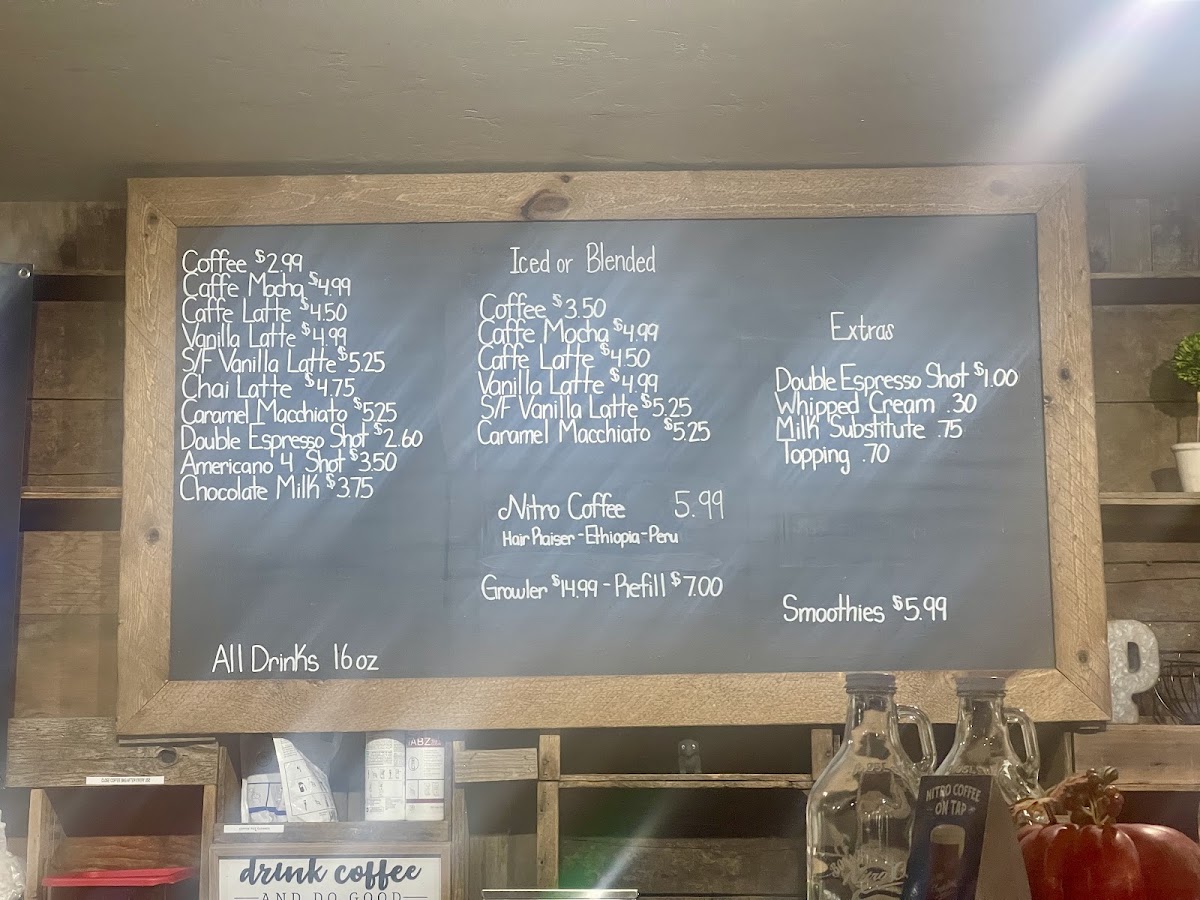 Coffee $2.99
Caffe Mocha $4.99
Caffe Latte $4.50
Vanilla Latte $4.99
S/F Vanilla Latte $5.25
Chai Latte $4.75
Caramel Macchiato $5.25
Double Espresso Shot $2.60
Americano 4 Shot $3.50
Chocolate Milk $3.75
All Drinks 16oz
Iced or Blended
Coffee $3.50
Caffe Mocha $4.99
Caffe Latte $4.50
Vanilla Latte $4.99
S/F Vanilla Latte $5.25
Caramel Macchiato $5.25
Nitro Coffee 5.99
Hair Raiser-Ethiopia-Peru
Growler $14.99-Refill $7.00
Extras
Double Espresso Shot $1.00
Whipped Cream .30
Milk Substitute .75
Topping .70
Smoothies $5.99
P
drink coffee
AND DO GOOD
NITRO COFFEE
ON TAP